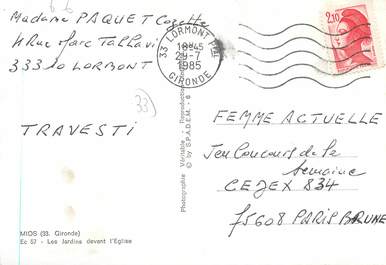 Madame PAQUET Cozette
4 Rue Marc Tallavi
33310 LORMONT
33
TRAVESTI
MIOS (33. Gironde)
Ec 57 - Les Jardins devant l'Eglise
Photographie Véritable - Reproduction
© by S.P.A.D.E.M. - 8
33 LORMONT PAL
18H45
29-7
1985
GIRONDE
2,10
FEMME ACTUELLE
Jeu Concours de la
Semaine
CEJEX 834
75608 PARIS BRUNE